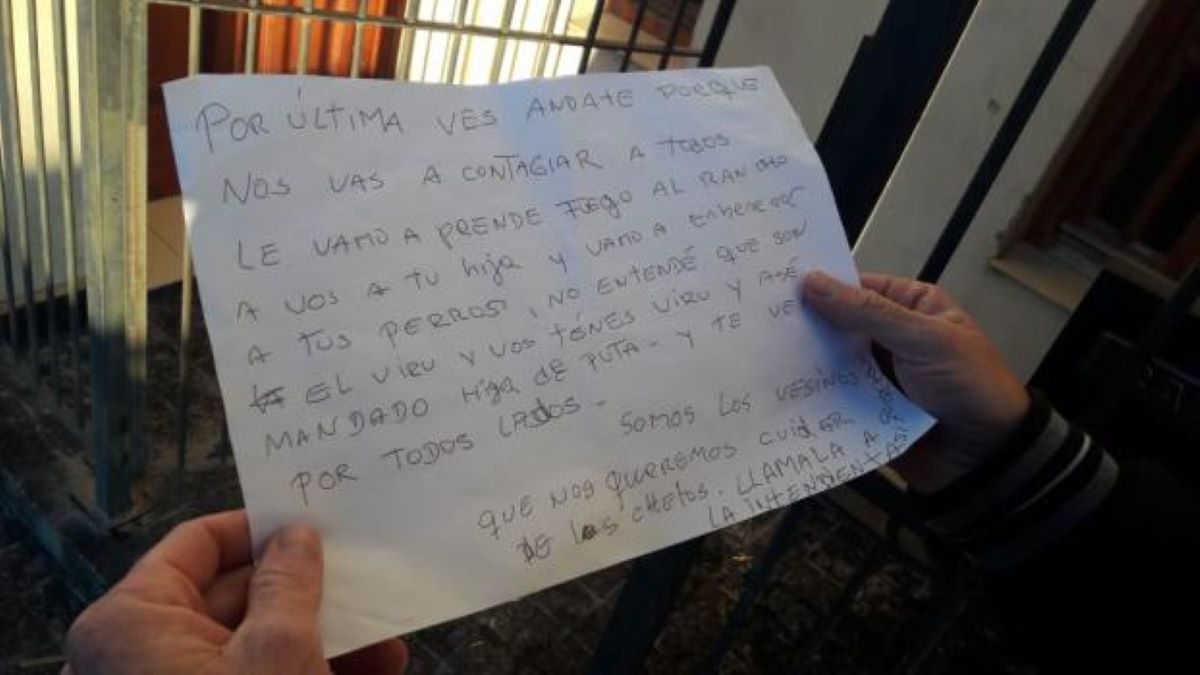 POR ÚLTIMA VES ANDATE PORQUE
NOS VAS A CONTAGIAR A TODOS
LE VAMO A PRENDE FUEGO AL RANCHO
A VOS A TU hija y VAMO A enbenenar
A TUS PERROS, NO ENTENDÉ QUE SON
EL VIRU Y VOS TENÉS VIRU Y ASÉ
MANDADO Hija de PUTA - Y TE VE
POR TODOS LADOS -
SOMOS LOS VESINOS
QUE NOS QUEREMOS CUIDAR
DE LOS CHETOS. LLAMALA A
LA INTENDENTA